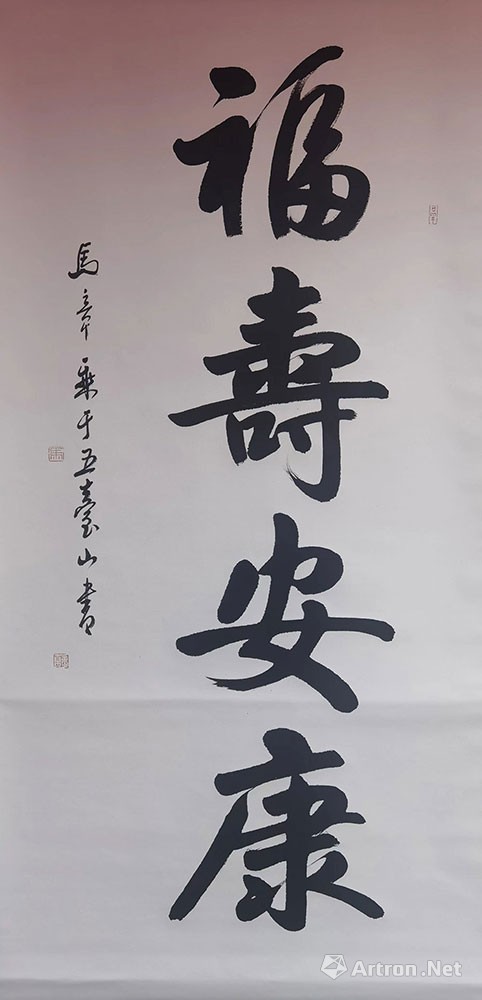 福壽安康
馬章乘于五臺山書
Artron.Net